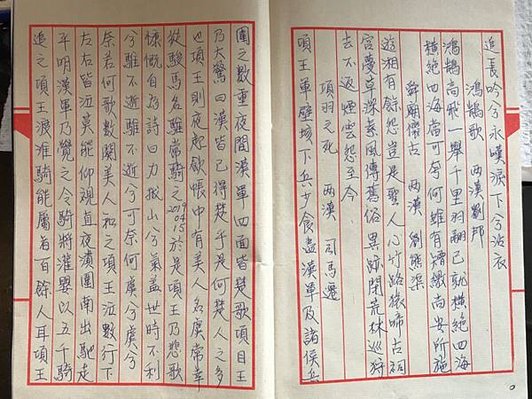 追長吟兮永嘆淚下兮沾衣
鴻鵠歌 兩漢 劉邦
鴻鵠高飛一舉千里羽翮已就橫絕四海
橫絕四海當可奈何雖有矰繳尚安所施
舜廟懷古 兩漢 劉 渠
遊湘有餘怨豈是聖人心竹路猿啼古祠
宮蔓草深素風傳舊俗異跡閉荒林巡狩
去不返煙雲怨至今
項羽之死 兩漢 司馬遷
項王軍壁垓下兵少食盡漢軍及諸侯兵
圍之數重夜聞漢軍四面皆楚歌項王
乃大驚曰漢皆已得楚乎是何楚人之多
也項王則夜起飲帳中有美人名虞常幸
從駿馬名騅常騎之 2019 04.15 於是項王乃悲歌
慷慨自為詩曰力拔山兮氣蓋世時不利
兮騅不逝騅不逝兮可奈何虞兮虞兮
奈若何歌數闋美人和之項王泣數行下
左右皆泣莫能仰視直夜潰圍南出馳走
平明漢軍乃覺之令騎將灌嬰以五千騎
追之項王渡淮騎能屬者百餘人耳項王